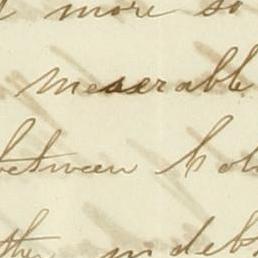 more so
meserable
between
the indeb